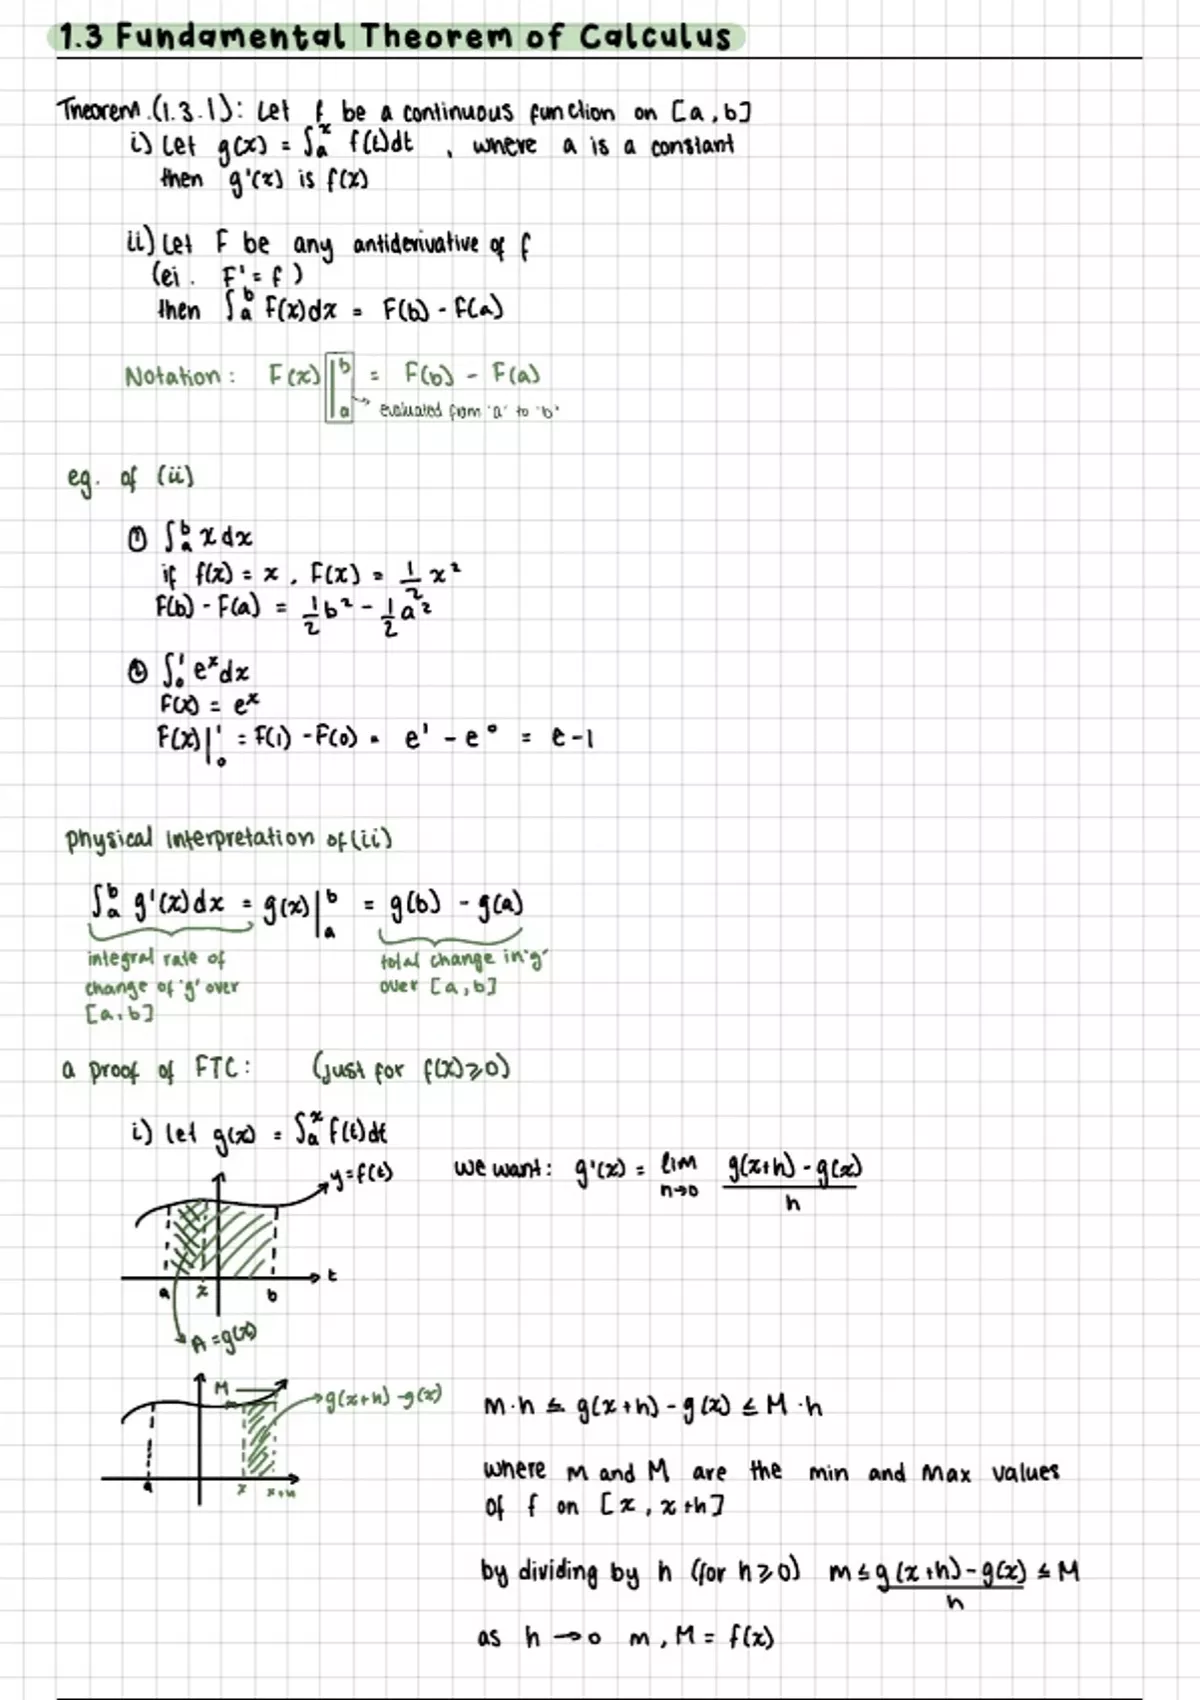 1.3 Fundamental Theorem of Calculus
Theorem (1.3.1): Let f be a continuous function on [a,b]
i) Let g(x) = ∫ₐˣ f(t)dt , where a is a constant
then g'(x) is f(x)
ii) Let F be any antiderivative of f
(ei. F' = f)
then ∫ₐᵇ F(x)dx = F(b) - F(a)
Notation: F(x)|ₐᵇ = F(b) - F(a)
→ evaluated from 'a' to 'b'
eg. of (ii)
① ∫ₐᵇ x dx
if f(x) = x, F(x) = 1/2 x²
F(b) - F(a) = 1/2 b² - 1/2 a²
② ∫₀¹ eˣdx
F(x) = eˣ
F(x)|₀¹ = F(1) - F(0) = e¹ - e⁰ = e-1
physical interpretation of (ii)
∫ₐᵇ g'(x)dx = g(x)|ₐᵇ = g(b) - g(a)
integral rate of change of 'g' over [a,b]
total change in 'g' over [a,b]
a proof of FTC: (just for f(x)≥0)
i) let g(x) = ∫ₐˣ f(t)dt
y=f(t)
we want: g'(x) = lim h→0 g(x+h) - g(x) / h
t
a x b
A = g(x)
M
g(x+h) - g(x)
m·h ≤ g(x+h) - g(x) ≤ M·h
a x x+h
where m and M are the min and max values
of f on [x, x+h]
by dividing by h (for h≥0) m ≤ g(x+h) - g(x) / h ≤ M
as h → 0 m, M = f(x)